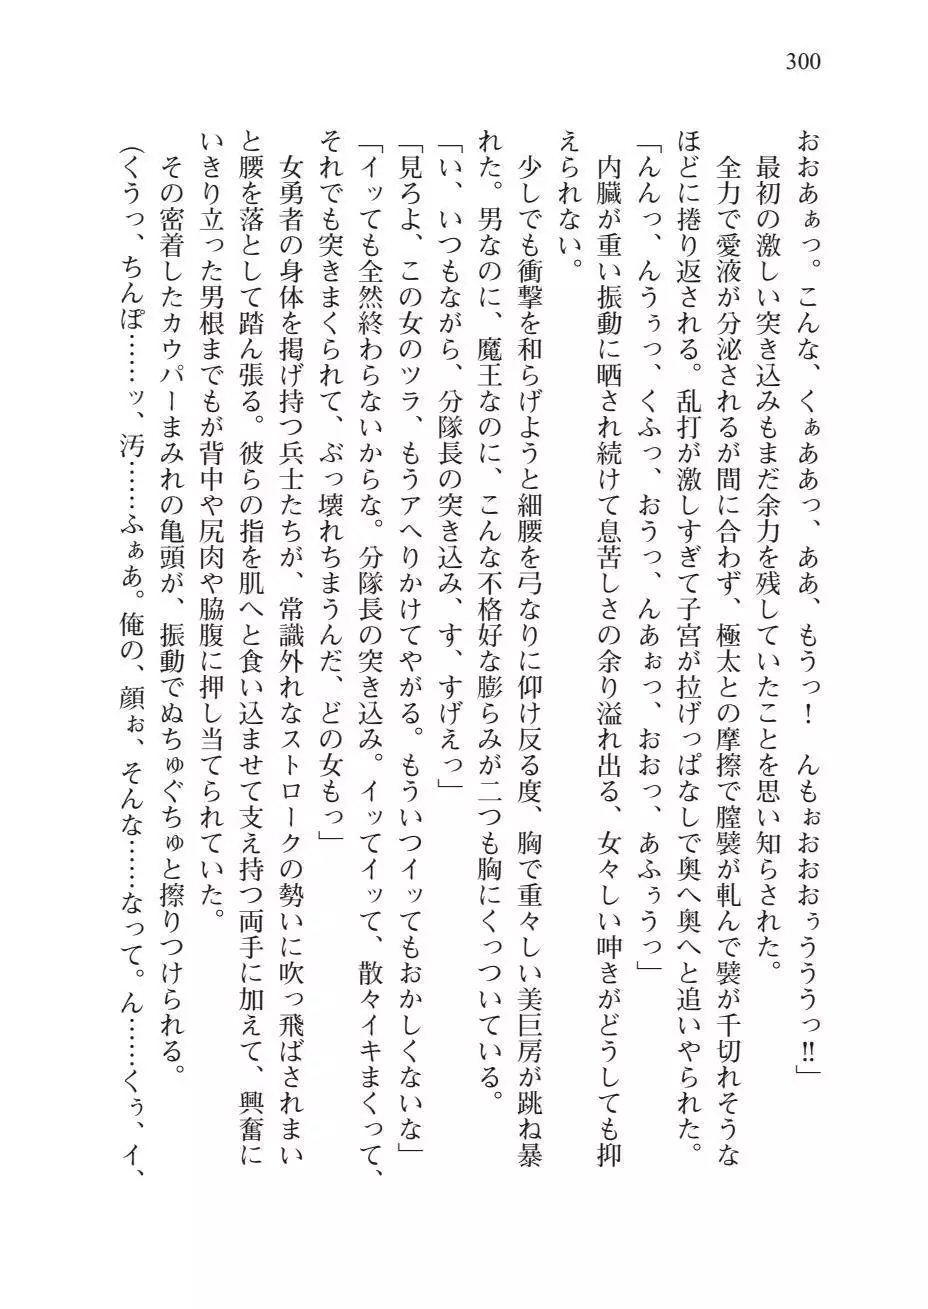 300
おおあぁっ。こんな、くぁああっ、ああ、もうっ！　んもぉおおおぅううううっ!!」
最初の激しい突き込みもまだ余力を残していたことを思い知らされた。
全力で愛液が分泌されるが間に合わず、極太との摩擦で膣襞が軋んで襞が千切れそうな
ほどに捲り返される。乱打が激しすぎて子宮が拉げっぱなしで奥へ奥へと追いやられた。
「んんっ、んうぅっ、くふっ、おうっ、んあぉっ、おおっ、あふぅうっ」
内臓が重い振動に晒され続けて息苦しさの余り溢れ出る、女々しい呻きがどうしても抑
えられない。
少しでも衝撃を和らげようと細腰を弓なりに仰け反る度、胸で重々しい美巨房が跳ね暴
れた。男なのに、魔王なのに、こんな不格好な膨らみが二つも胸にくっついている。
「い、いつもながら、分隊長の突き込み、す、すげえっ」
「見ろよ、この女のツラ、もうアヘりかけてやがる。もういつイッてもおかしくないな」
「イッても全然終わらないからな。分隊長の突き込み。イッてイッて、散々イキまくって、
それでも突きまくられて、ぶっ壊れちまうんだ、どの女もっ」
女勇者の身体を掲げ持つ兵士たちが、常識外れなストロークの勢いに吹っ飛ばされまい
と腰を落として踏ん張る。彼らの指を肌へと食い込ませて支え持つ両手に加えて、興奮に
いきり立った男根までもが背中や尻肉や脇腹に押し当てられていた。
その密着したカウパーまみれの亀頭が、振動でぬちゅぐちゅと擦りつけられる。
（くうっ、ちんぽ……ッ、汚……ふぁあ。俺の、顔ぉ、そんな……なって。ん……くぅ、イ、